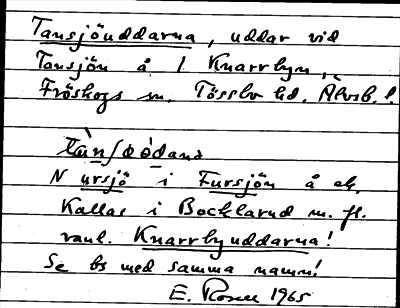 Tansjöuddarna, uddar vid
Tansjön å 1 Knarrbyn,
Fröskogs sn. Tössbo hd. Älvsb. l.
N ursjö i Fursjön å ek.
Kallas i Bocklarud m. fl.
vanl. Knarrbyuddarna!
Se bs med samma namn!
E. Rosell 1965